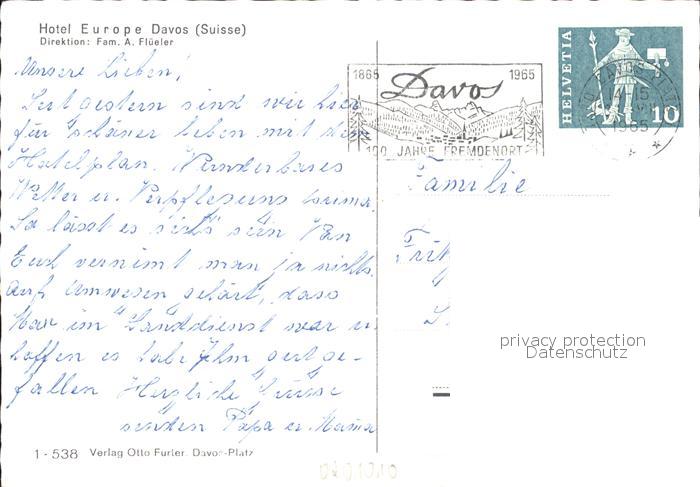 Hotel Europe Davos (Suisse)
Direktion: Fam. A. Flüeler
Unsere Lieben!
Seit gestern sind wir hier
für schöner leben mit dem
Hotelplan. Wunderbares
Wetter u. Verpflegung
So lässt es sich sein Von
Euch vernimt man ja nichts.
Auf Umwegen gehört, dass
Max im Landdienst war u.
hoffen es habe ihm gut ge-
fallen Herzliche Grüsse
senden Papa u. Mama
1-538 Verlag Otto Furter, Davos-Platz
1865 Davos 1965
100 JAHRE FREMDENORT
HELVETIA
10
14-15
1965
Familie
privacy protection
Datenschutz